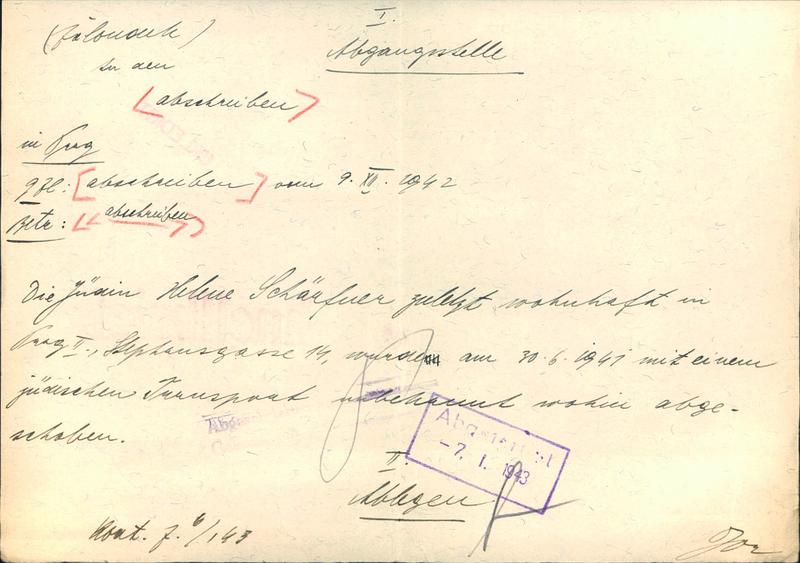 I.
Abgangsstelle
An den
[abschreiben]
in Prag
[abschreiben] vom 9. XII. 1942
Betr: abschreiben
Die Jüdin Helene Schärfner zuletzt wohnhaft in
Prag II., Stephansgasse 14, wurde am 30.6.1941 mit einem
jüdischen Transport unbekannt wohin abge-
schoben.
Abgefertigt
-7. I. 1943
II.
Ablegen